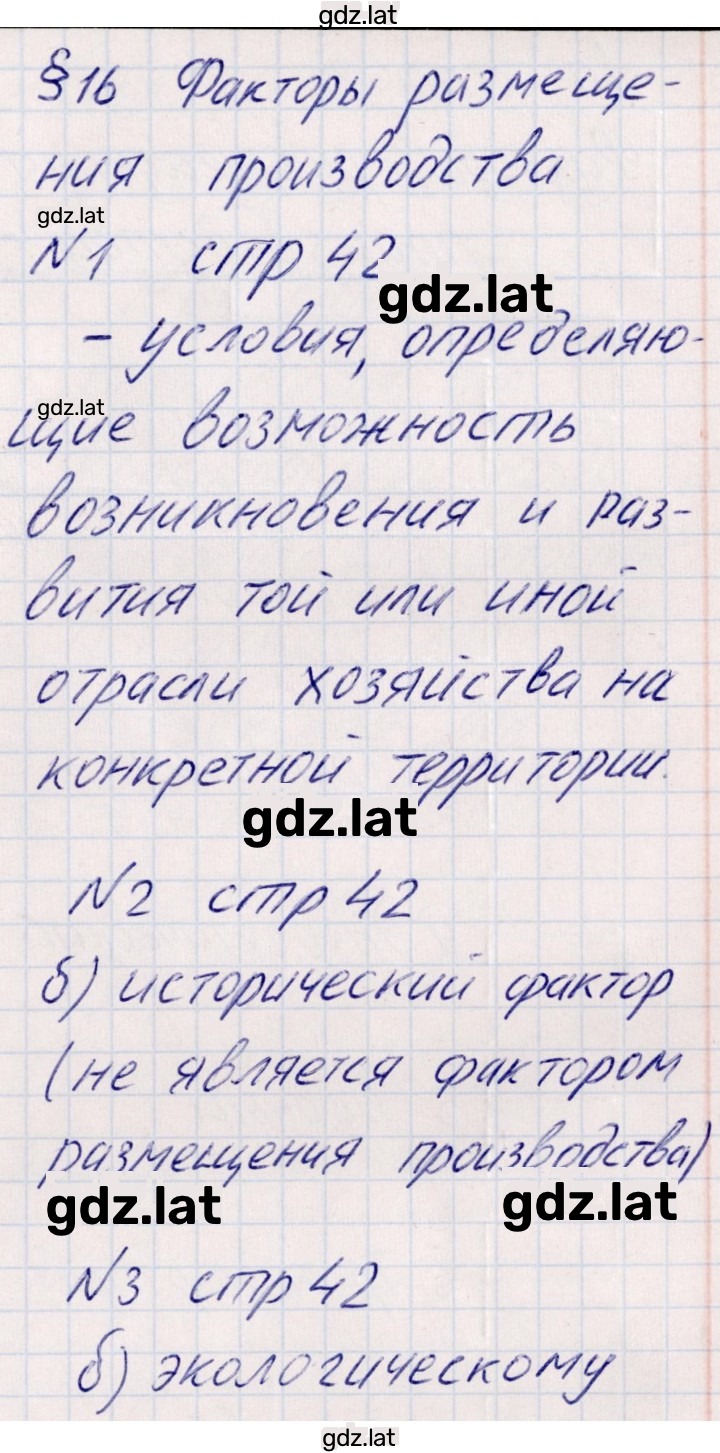 gdz.lat
§16 Факторы размеще-
ния производства
gdz.lat
№1 стр 42
gdz.lat
- условия, определяю-
gdz.lat
щие возможность
возникновения и раз-
вития той или иной
отрасли хозяйства на
конкретной территории.
gdz.lat
№2 стр 42
б) исторический фактор
(не является фактором
размещения производства)
gdz.lat gdz.lat
№3 стр 42
б) экологическому
gdz.lat